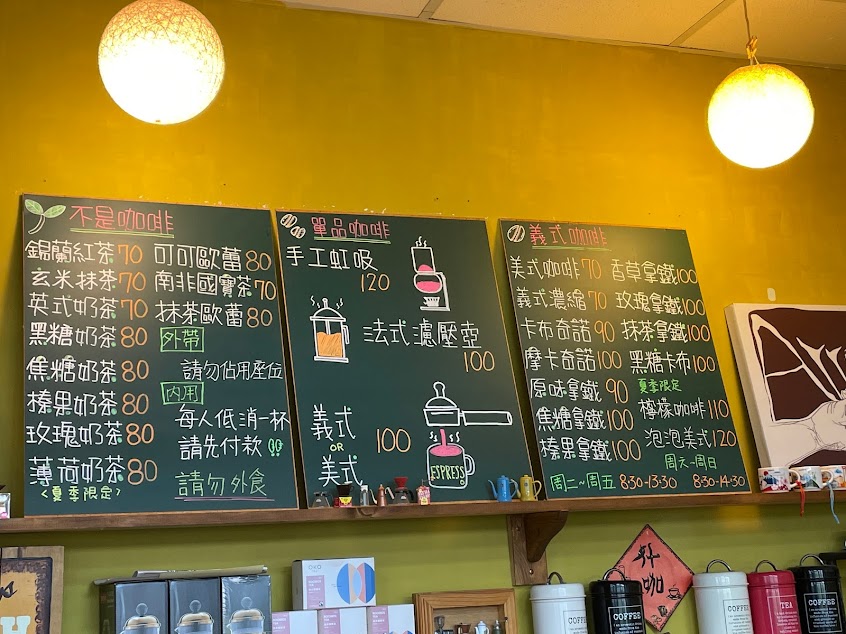 不是咖啡
錫蘭紅茶 70
玄米抹茶 70
英式奶茶 70
黑糖奶茶 80
焦糖奶茶 80
榛果奶茶 80
玫瑰奶茶 80
薄荷奶茶 80
<夏季限定>
可可歐蕾 80
南非國寶茶 70
抹茶歐蕾 80
外帶
請勿佔用座位
內用
每人低消一杯
請先付款
請勿外食
單品咖啡
手工虹吸
120
法式濾壓壺
100
義式
OR
美式
100
ESPRESS
義式咖啡
美式咖啡 70
義式濃縮 70
卡布奇諾 90
摩卡奇諾 100
原味拿鐵 90
焦糖拿鐵 100
榛果拿鐵 100
香草拿鐵 100
玫瑰拿鐵 100
抹茶拿鐵 100
黑糖卡布 100
夏季限定
檸檬咖啡 110
泡泡美式 120
周二~周五 8:30-13:30
周六~周日
8:30-14:30
好咖
COFFEE
COFFEE
COFFEE
TEA
COFFEE